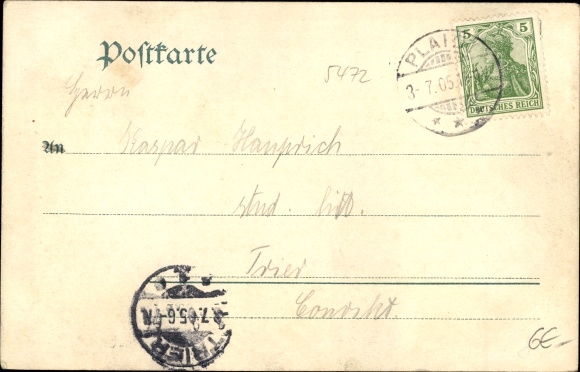 Postkarte
5472
5
5
DEUTSCHES REICH
PLAI
3-7.05.
Herrn
An Kaspar Hauprich
stud. litt.
Trier
Convikt.
7.05.6-7
TRIER
6€-